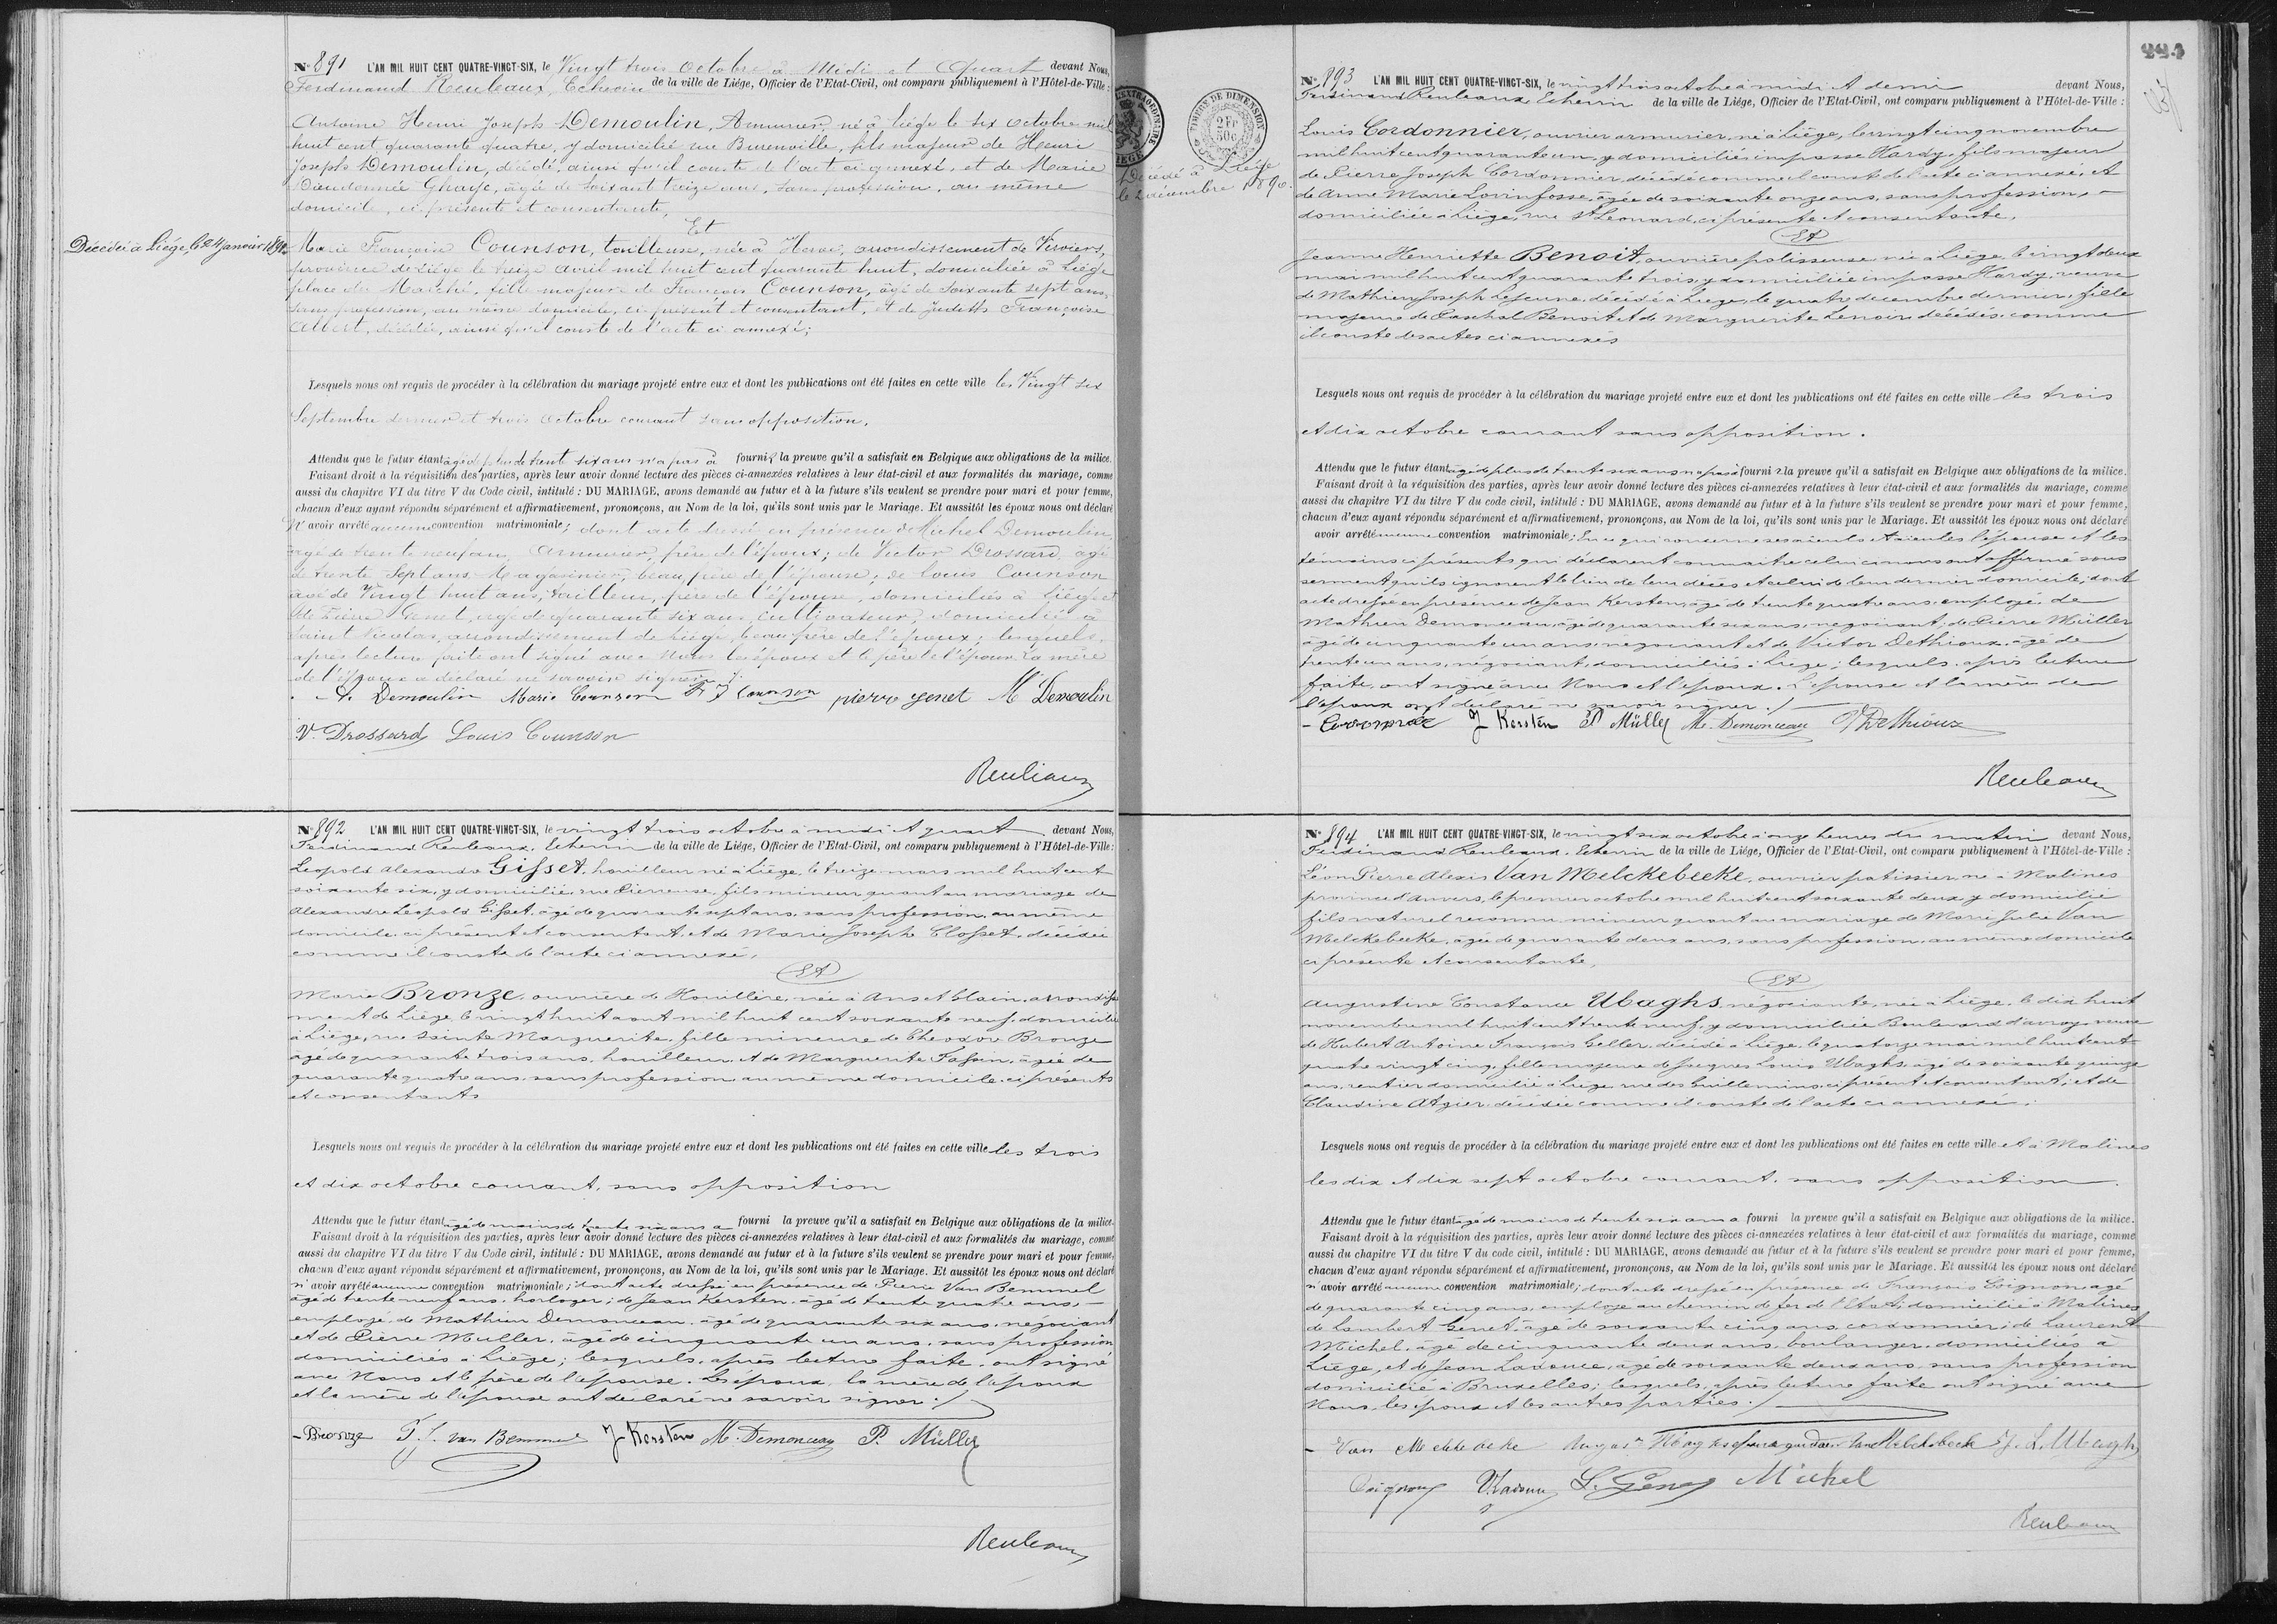 N° 891 L'AN MIL HUIT CENT QUATRE-VINGT-SIX, le Vingt trois Octobre à Midi et Quart devant Nous,
Ferdinand Reuleaux, Echevin de la ville de Liége, Officier de l'Etat-Civil, ont comparu publiquement à l'Hôtel-de-Ville :
Antoine Henri Joseph Demoulin, Armurier, né à Liége le six octobre mil
huit cent quarante quatre, y domicilié rue Burenville, fils majeur de Henri
Joseph Demoulin, décédé, ainsi qu'il conste de l'acte ci annexé, et de Marie
Dieudonnée Ghaye, âgée de soixante treize ans, sans profession, au même
domicile, ci présente et consentante,
Et
Décédée à Liége, le 24 janvier
Marie Françoise Counson, tailleuse, née à Herve, arrondissement de Verviers,
province de Liége le treize avril mil huit cent quarante huit, domiciliée à Liége
place du Marché, fille majeure de François Counson, âgé de soixante sept ans,
sans profession, au même domicile, ci présent et consentant, et de Judith Françoise
Albert, décédée, ainsi qu'il conste de l'acte ci annexé;
Lesquels nous ont requis de procéder à la célébration du mariage projeté entre eux et dont les publications ont été faites en cette ville les Vingt six
Septembre dernier et trois Octobre courant sans opposition.
Attendu que le futur étant âgé de plus de trente six ans n'a pas à fournir la preuve qu'il a satisfait en Belgique aux obligations de la milice.
Faisant droit à la réquisition des parties, après leur avoir donné lecture des pièces ci-annexées relatives à leur état-civil et aux formalités du mariage, comme
aussi du chapitre VI du titre V du Code civil, intitulé : DU MARIAGE, avons demandé au futur et à la future s'ils veulent se prendre pour mari et pour femme,
chacun d'eux ayant répondu séparément et affirmativement, prononçons, au Nom de la loi, qu'ils sont unis par le Mariage. Et aussitôt les époux nous ont déclaré
N'avoir arrêté aucune convention matrimoniale; dont acte dressé en présence de Michel Demoulin,
âgé de trente neuf ans, Armurier, frère de l'époux; de Victor Drossard, âgé
de trente Sept ans, Magasinier, beau frère de l'épouse; de Louis Counson
âgé de Vingt huit ans, tailleur, frère de l'épouse, domiciliés à Liége et
de Pierre Genet, âgé de quarante six ans, cultivateur, domicilié à
Saint Nicolas, arrondissement de Liége, beau frère de l'époux; lesquels,
après lecture faite ont signé avec Nous les époux et le père de l'épouse. La mère
de l'époux a déclaré ne savoir signer
A. Demoulin Marie Counson F J Counson pierre genet M Demoulin
V. Drossard Louis Counson
Reuleaux
N° 892 L'AN MIL HUIT CENT QUATRE-VINGT-SIX, le vingt trois octobre à midi et quart devant Nous,
Ferdinand Reuleaux, Echevin de la ville de Liége, Officier de l'Etat-Civil, ont comparu publiquement à l'Hôtel-de-Ville :
Léopold Alexandre Gisset, houilleur né à Liège, le treize mars mil huit cent
soixante six, y domicilié, rue Pierreuse, fils mineur quant au mariage de
Alexandre Léopold Gisset, âgé de quarante sept ans, sans profession, au même
domicile, ci présent et consentant, et de Marie Joseph Closset, décédée
comme il conste de l'acte ci annexé,
Et
Marie Bronze, ouvrière de Houillère, née à Ans et Glain, arrondisse
ment de Liège, le vingt huit aout mil huit cent soixante neuf, domiciliée
à Liège, rue Sainte Marguerite, fille mineure de Théodore Bronze
âgé de quarante trois ans, houilleur, et de Marguerite Fassin, âgée de
quarante quatre ans, sans profession, au même domicile, ci présents
et consentants
Lesquels nous ont requis de procéder à la célébration du mariage projeté entre eux et dont les publications ont été faites en cette ville les trois
et dix octobre courant, sans opposition
Attendu que le futur étant âgé de moins de trente six ans a fourni la preuve qu'il a satisfait en Belgique aux obligations de la milice.
Faisant droit à la réquisition des parties, après leur avoir donné lecture des pièces ci-annexées relatives à leur état-civil et aux formalités du mariage, comme
aussi du chapitre VI du titre V du Code civil, intitulé : DU MARIAGE, avons demandé au futur et à la future s'ils veulent se prendre pour mari et pour femme,
chacun d'eux ayant répondu séparément et affirmativement, prononçons, au Nom de la loi, qu'ils sont unis par le Mariage. Et aussitôt les époux nous ont déclaré
n'avoir arrêté aucune convention matrimoniale; dont acte dressé en présence de Pierre Van Bemmel
âgé de trente neuf ans, horloger; de Jean Kersten, âgé de trente quatre ans,
employé, de Mathieu Demonceau, âgé de quarante six ans, négociant
et de Pierre Muller, âgé de cinquante un ans, sans profession
domiciliés à Liège; lesquels, après lecture faite, ont signé
avec Nous et le père de l'épouse. Les époux, la mère de l'époux
et la mère de l'épouse ont déclaré ne savoir signer
Bronze van Bemmel J Kersten M. Demonceau P. Müller
Reuleaux
TIMBRE DE DIMENSION
2 FR
50c
LIÉGE
Décédé à Liége
le 2 décembre 1890.
224
N° 893 L'AN MIL HUIT CENT QUATRE-VINGT-SIX, le vingt trois octobre à midi et demi devant Nous,
Ferdinand Reuleaux Echevin de la ville de Liége, Officier de l'Etat-Civil, ont comparu publiquement à l'Hôtel-de-Ville :
Louis Cordonnier, ouvrier armurier, né à Liège, le vingt cinq novembre
mil huit cent quarante un, y domicilié impasse Hardy, fils majeur
de Pierre Joseph Cordonnier, décédé comme il conste de l'acte ci annexé, et
de Anne Marie Lovinfosse, âgée de soixante onze ans, sans profession,
domiciliée à Liège, rue St Léonard, ci présente et consentante,
Et
Jeanne Henriette Benoit, ouvrière polisseuse née à Liège, le vingt deux
mai mil huit cent quarante trois, y domiciliée impasse Hardy, veuve
de Mathieu Joseph Lejeune, décédé à Liège, le quatre décembre dernier, fille
majeure de Paschal Benoit et de Marguerite Lenoir, décédés comme
il conste des actes ci annexés
Lesquels nous ont requis de procéder à la célébration du mariage projeté entre eux et dont les publications ont été faites en cette ville les trois
et dix octobre courant sans opposition.
Attendu que le futur étant âgé de plus de trente six ans n'a pas à fournir la preuve qu'il a satisfait en Belgique aux obligations de la milice.
Faisant droit à la réquisition des parties, après leur avoir donné lecture des pièces ci-annexées relatives à leur état-civil et aux formalités du mariage, comme
aussi du chapitre VI du titre V du code civil, intitulé : DU MARIAGE, avons demandé au futur et à la future s'ils veulent se prendre pour mari et pour femme,
chacun d'eux ayant répondu séparément et affirmativement, prononçons, au Nom de la loi, qu'ils sont unis par le Mariage. Et aussitôt les époux nous ont déclaré
avoir arrêté aucune convention matrimoniale; En ce qui concerne ses aieuls et aieules l'épouse et les
témoins ci présents qui déclarent connaitre celle ci nous ont affirmé sous
serment qu'ils ignorent le lieu de leur décès et celui de leur dernier domicile; dont
acte dressé en présence de Jean Kersten, âgé de trente quatre ans, employé, de
Mathieu Demonceau, âgé de quarante six ans, négociant; de Pierre Müller
âgé de cinquante un ans, négociant et de Victor Dethioux, âgé de
trente un ans, négociant, domiciliés à Liège; lesquels, après lecture
faite, ont signé avec Nous et l'époux. L'épouse et la mère de
l'époux ont déclaré ne savoir signer
J Kersten P Müller M. Demonceau V Dethioux
Reuleaux
N° 894 L'AN MIL HUIT CENT QUATRE-VINGT-SIX, le vingt six octobre à onze heures du matin devant Nous,
Ferdinand Reuleaux, Echevin de la ville de Liége, Officier de l'Etat-Civil, ont comparu publiquement à l'Hôtel-de-Ville :
Léon Pierre Alexis Van Melckebeeke, ouvrier patissier, né à Malines
province d'Anvers, le premier octobre mil huit cent soixante deux, y domicilié
fils naturel reconnu mineur quant au mariage de Marie Julie Van
Melckebeeke, âgée de quarante deux ans, sans profession, au même domicile
ci présente et consentante,
Et
Augustine Constance Ubaghs, négociante, née à Liège, le dix huit
novembre mil huit cent trente neuf, y domiciliée Boulevard d'avroy, veuve
de Hubert Antoine François Geller, décédé à Liège, le quatorze mai mil huit cent
quatre vingt cinq, fille majeure de Jacques Louis Ubaghs, âgé de soixante quinze
ans, rentier domicilié à Liège rue des Guillemins, ci présent et consentant; et de
Claudine Atgier, décédée comme il conste de l'acte ci annexé.
Lesquels nous ont requis de procéder à la célébration du mariage projeté entre eux et dont les publications ont été faites en cette ville et à Malines
les dix et dix sept octobre courant, sans opposition.
Attendu que le futur étant âgé de moins de trente six ans a fourni la preuve qu'il a satisfait en Belgique aux obligations de la milice.
Faisant droit à la réquisition des parties, après leur avoir donné lecture des pièces ci-annexées relatives à leur état-civil et aux formalités du mariage, comme
aussi du chapitre VI du titre V du code civil, intitulé : DU MARIAGE, avons demandé au futur et à la future s'ils veulent se prendre pour mari et pour femme,
chacun d'eux ayant répondu séparément et affirmativement, prononçons, au Nom de la loi, qu'ils sont unis par le Mariage. Et aussitôt les époux nous ont déclaré
n'avoir arrêté aucune convention matrimoniale; dont acte dressé en présence de François Coignon, âgé
de quarante cinq ans, employé au chemin de fer de l'Etat, domicilié à Malines
de Lambert Genet, âgé de soixante cinq ans, cordonnier; de Laurent
Michel, âgé de cinquante deux ans, boulanger, domiciliés à
Liège, et de Jean Ladouce, âgé de soixante deux ans, sans profession
domicilié à Bruxelles; lesquels, après lecture faite ont signé avec
Nous, les époux et les autres parties.
Van Melckebeke Van Melckebeeke J. L. Ubaghs
Coignon L. Genet Michel
Reuleaux